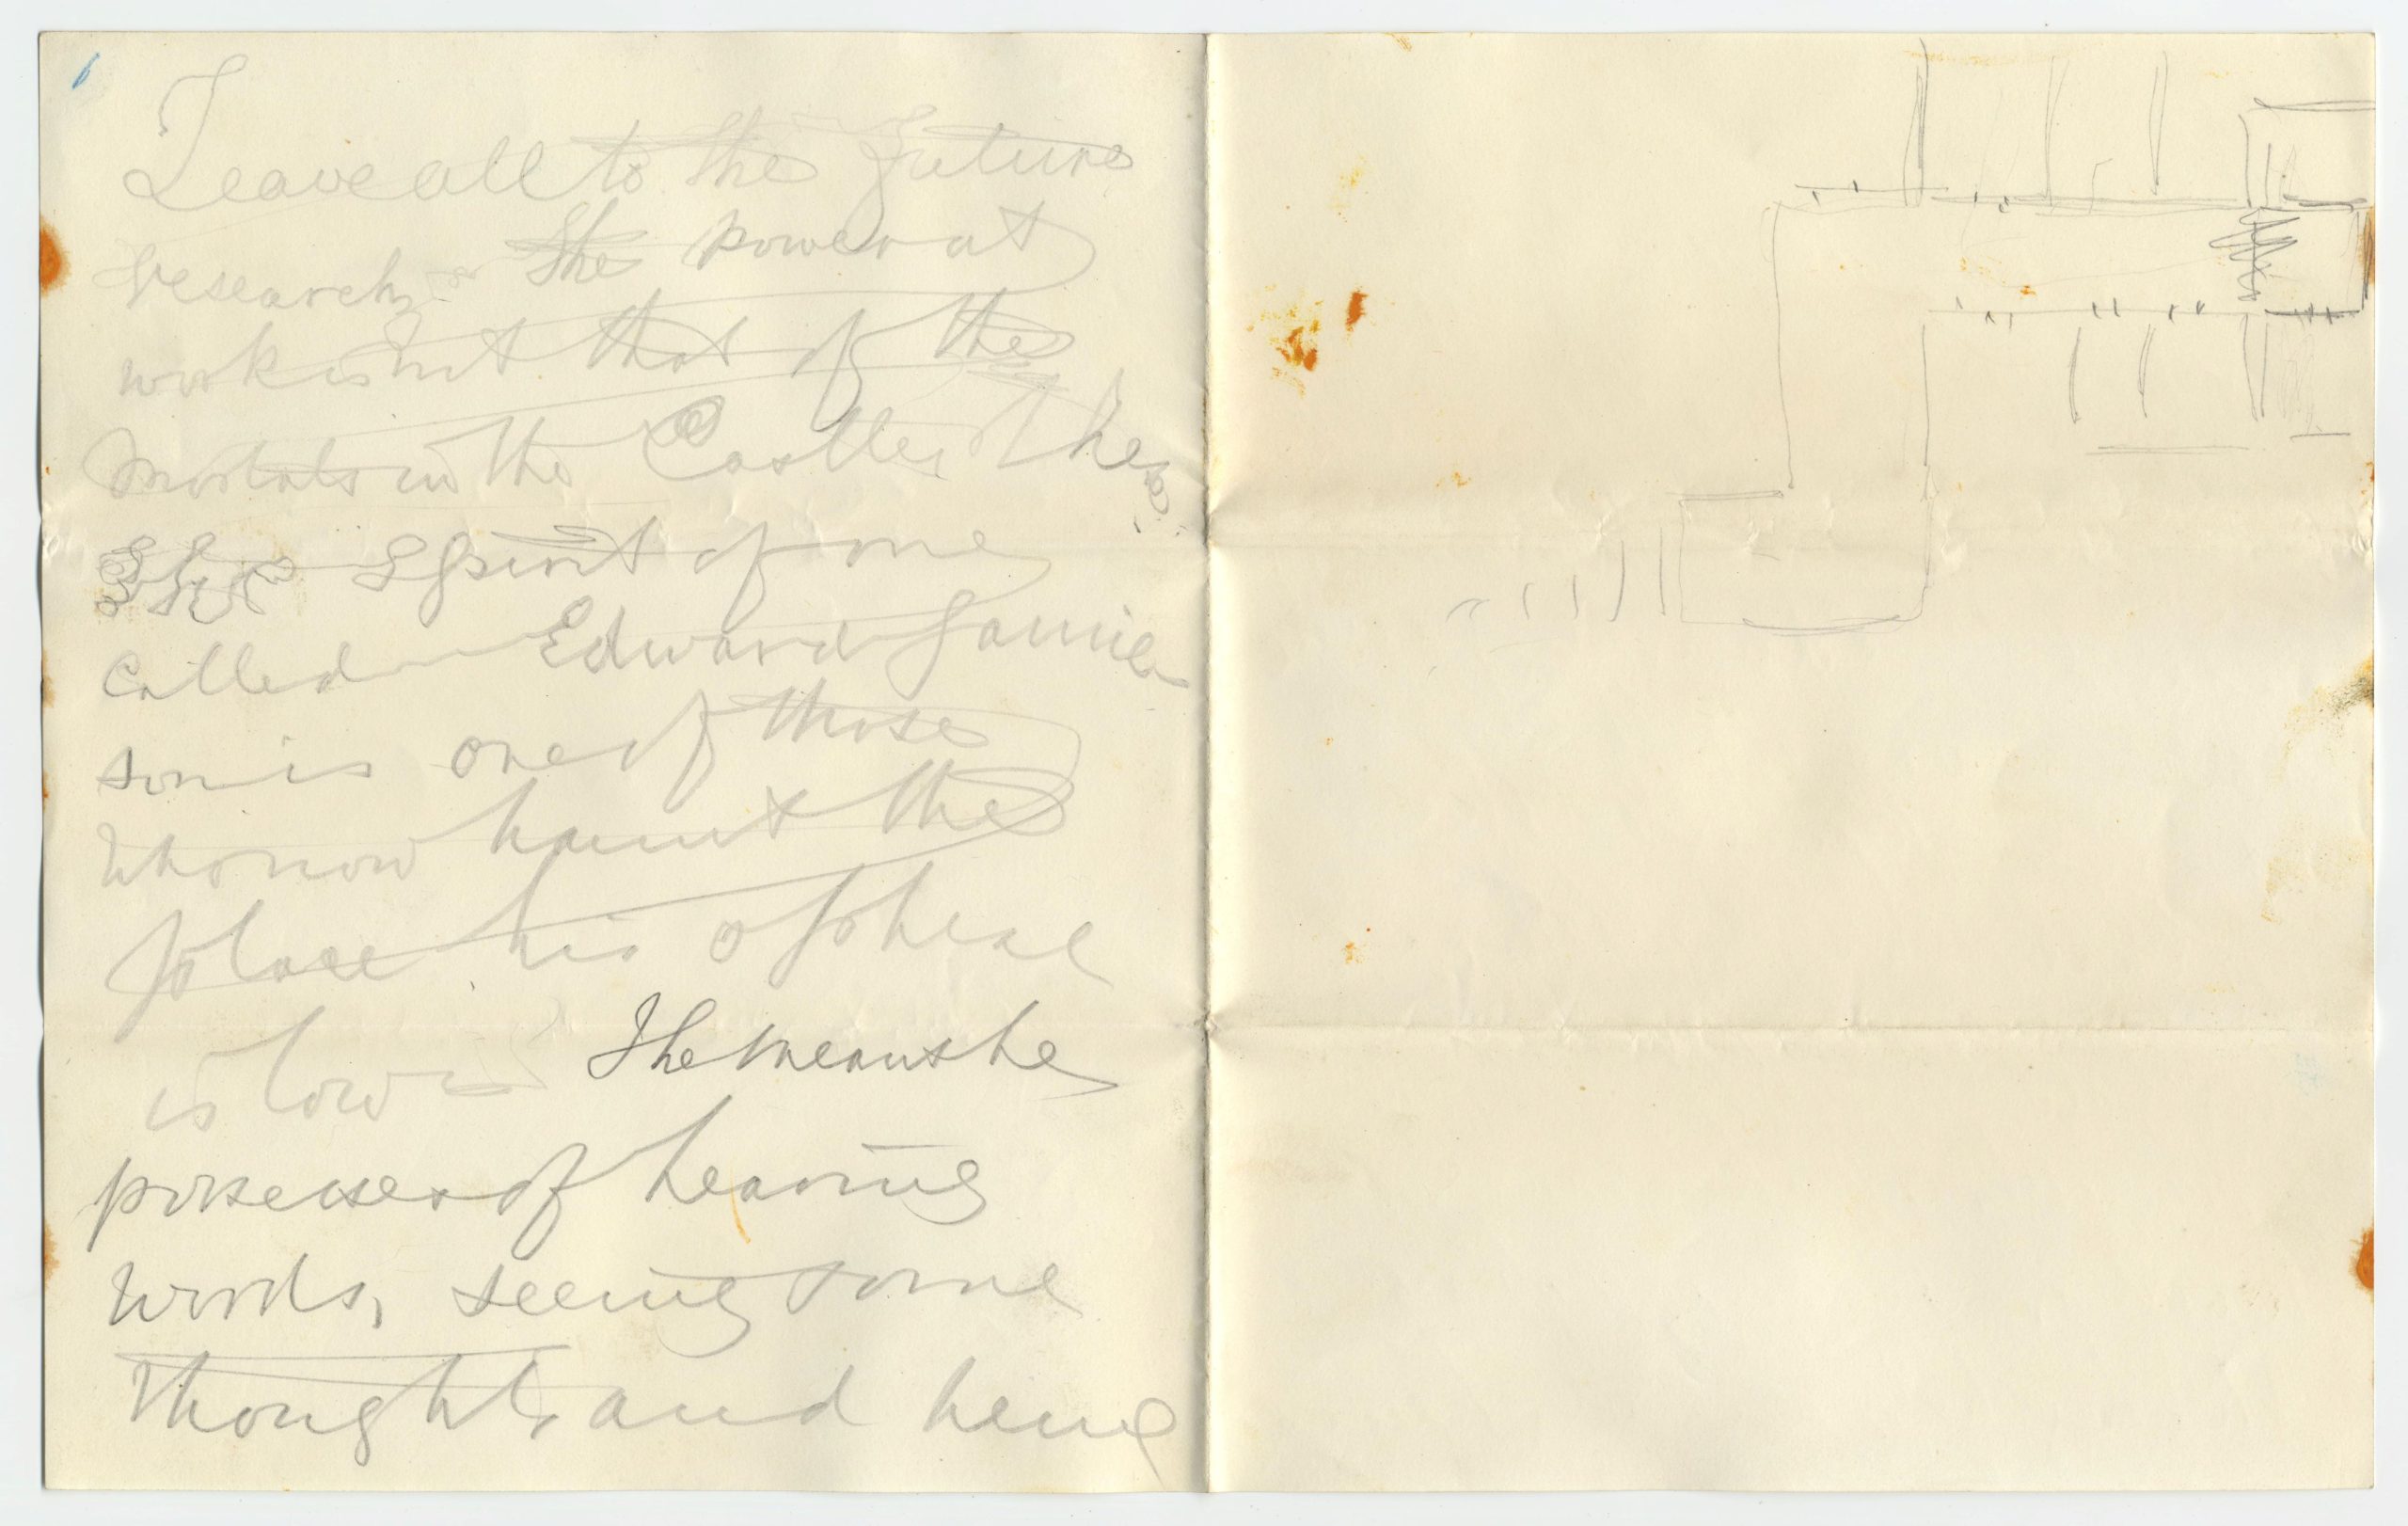 Leave all to the future
research. The power at
work is not that of the
mortals in the Castle. The
The Spirit of one
called Edward Jamie
son is one of those
who now haunt the
place his sphere
is low The means he
possesses of hearing
words, seeing some
thoughts and being